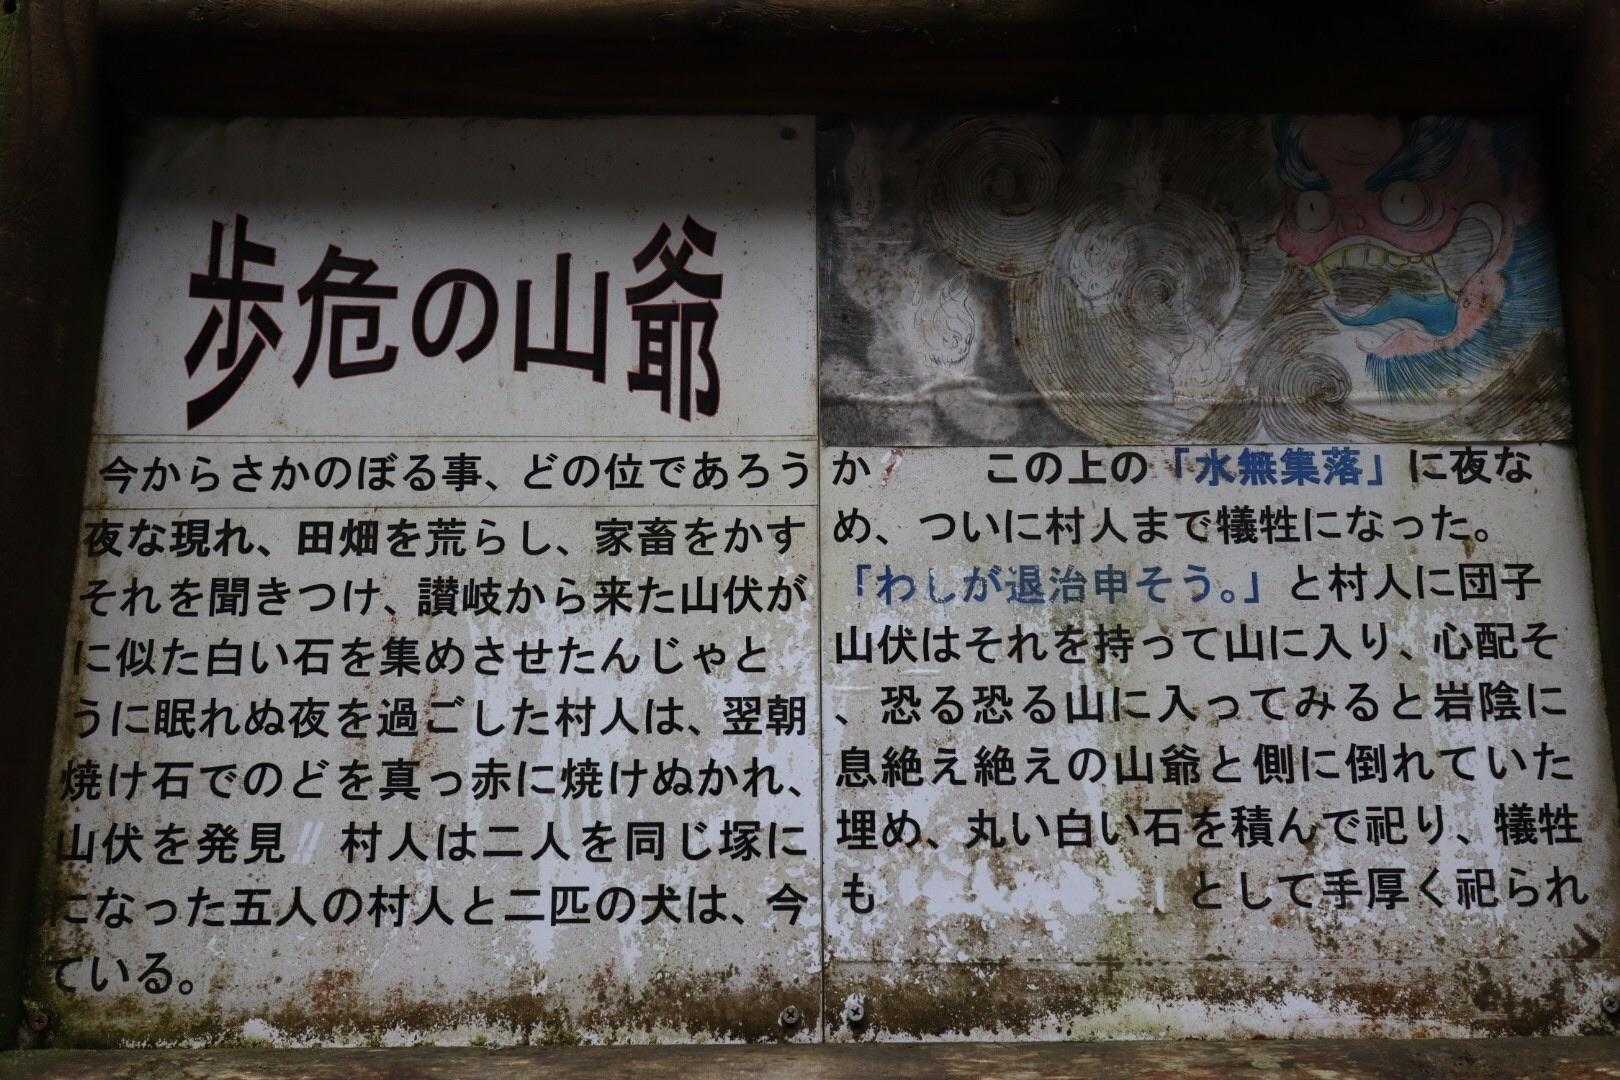 歩危の山爺
今からさかのぼる事、どの位であろうか この上の「水無集落」に夜な
夜な現れ、田畑を荒らし、家畜をかすめ、ついに村人まで犠牲になった。
それを聞きつけ、讃岐から来た山伏が「わしが退治申そう。」と村人に団子
に似た白い石を集めさせたんじゃと 山伏はそれを持って山に入り、心配そ
うに眠れぬ夜を過ごした村人は、翌朝、恐る恐る山に入ってみると岩陰に
焼け石でのどを真っ赤に焼けぬかれ、息絶え絶えの山爺と側に倒れていた
山伏を発見 村人は二人を同じ塚に埋め、丸い白い石を積んで祀り、犠牲
になった五人の村人と二匹の犬は、今も として手厚く祀られ
ている。